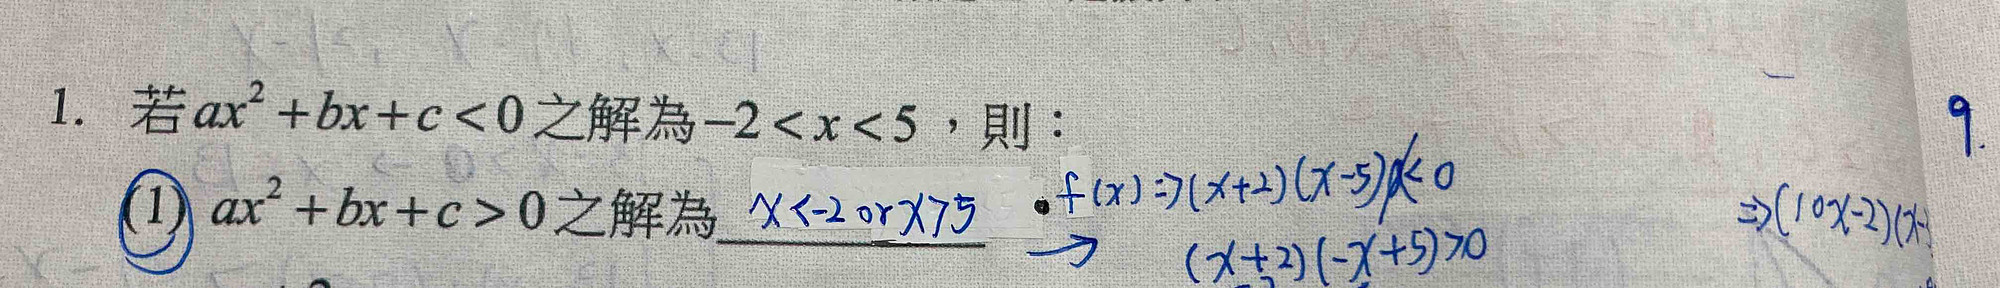 1. 若 ax² + bx + c < 0 之解為 −2 < x < 5，則：
(1) ax² + bx + c > 0 之解為 x<-2 or x>5
f(x) ⇒ (x+2)(x-5) < 0
→ (x+2)(-x+5)>0
9.
⇒(10x-2)(x-